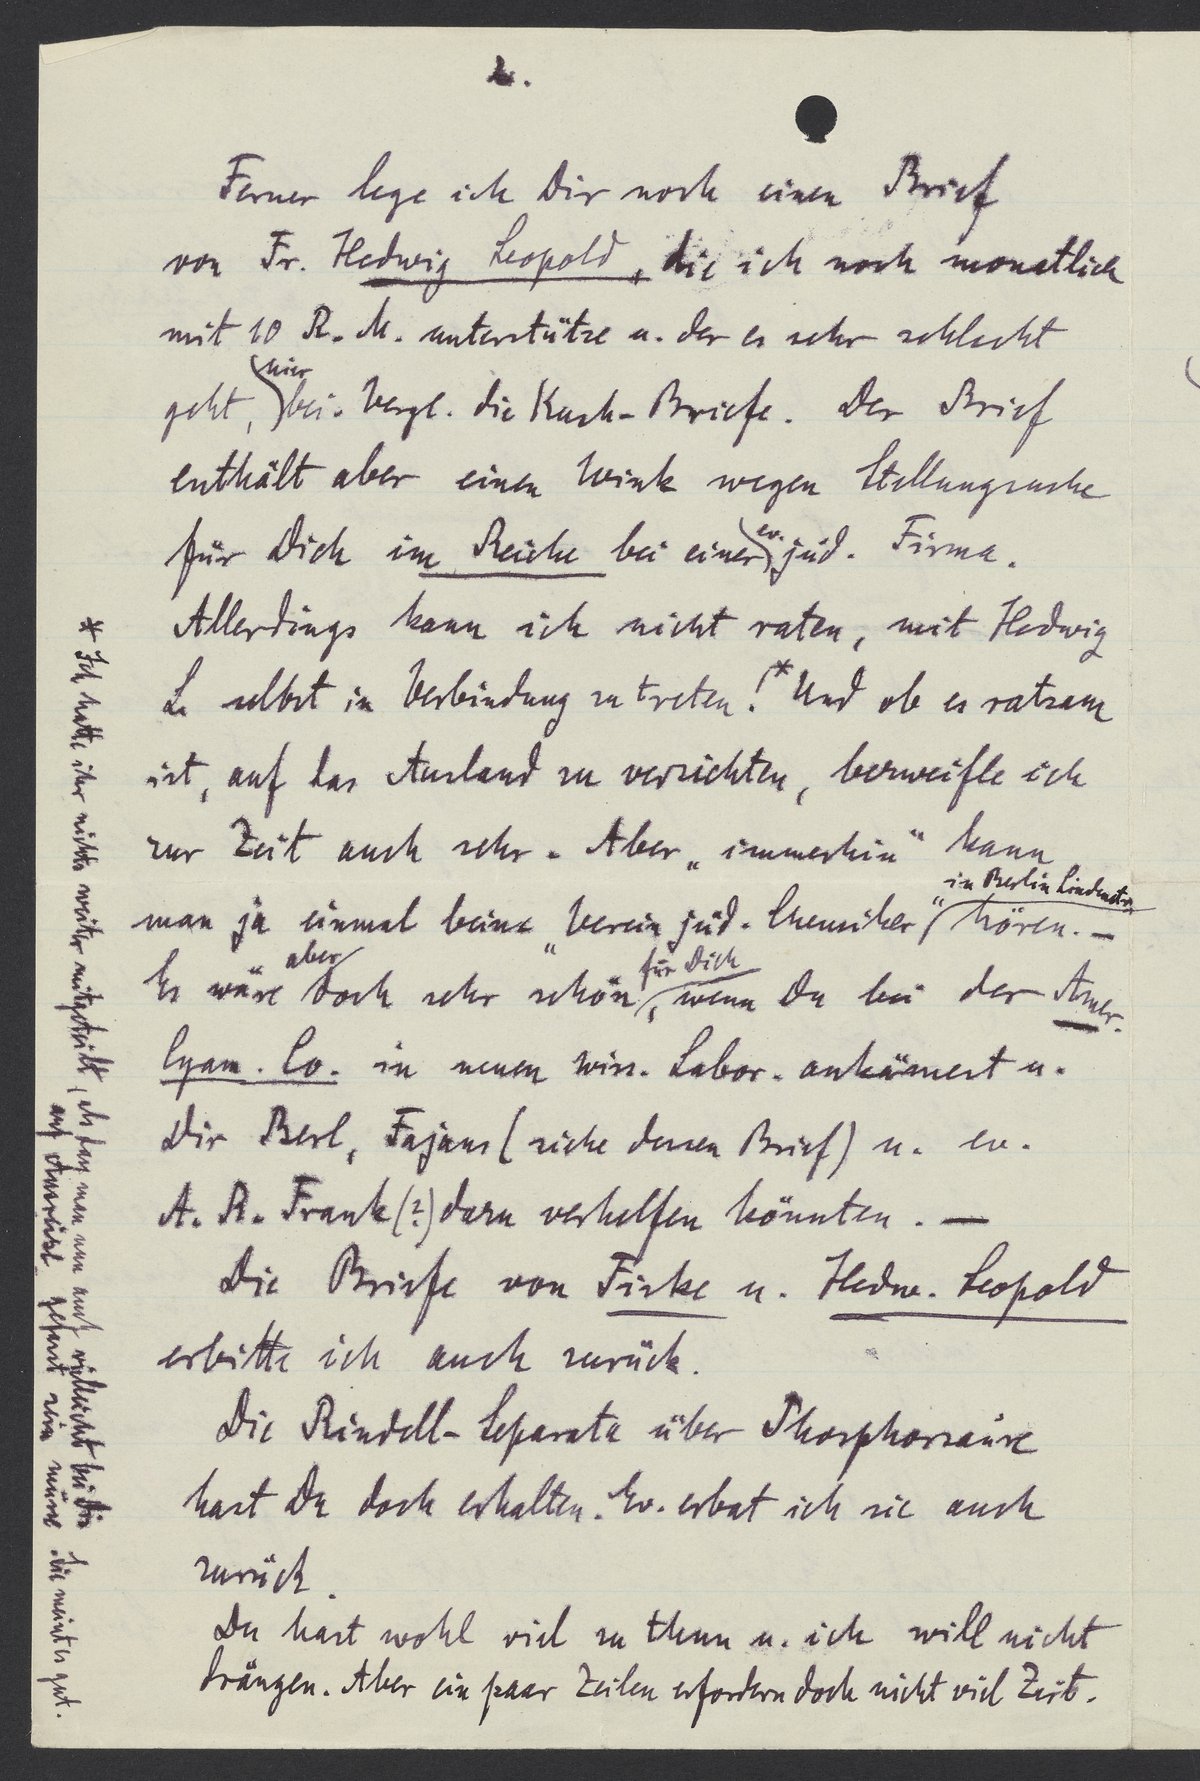 2.
Ferner lege ich Dir noch einen Brief
von Fr. Hedwig Leopold, die ich noch monatlich
mit 10 R. M. unterstütze u. der es sehr schlecht
geht, hier bei. Vergl. die Kush-Briefe. Der Brief
enthält aber einen Wink wegen Stellungsuche
für Dich im Reiche bei einer ev. jüd. Firma.
Allerdings kann ich nicht raten, mit Hedwig
L. selbst in Verbindung zu treten!* Und ob es ratsam
ist, auf das Ausland zu verzichten, bezweifle ich
zur Zeit auch sehr. Aber „immerhin" kann
man ja einmal beim „Verein jüd. Chemiker" in Berlin Lindenstr. hören. —
Es wäre aber doch sehr schön für Dich, wenn Du bei der Amer.
Cyam. Co. in neuen wiss. Labor. ankämest u.
Dir Berl, Fajans (siehe dessen Brief) u. ev.
A. R. Frank (?) dazu verhelfen könnten. —
Die Briefe von Fiske u. Hedw. Leopold
erbitte ich auch zurück.
Die Rindell-Separata über Phosphorsäure
hast Du doch erhalten. Ev. erbat ich sie auch
zurück.
Du hast wohl viel zu thun u. ich will nicht
drängen. Aber ein paar Zeilen erfordern doch nicht viel Zeit.
* Ich hatte ihr nichts weiter mitgeteilt, als daß man nun auch vielleicht bei Dir
auf Amerika gefasst sein müsse. Sie meint es gut.